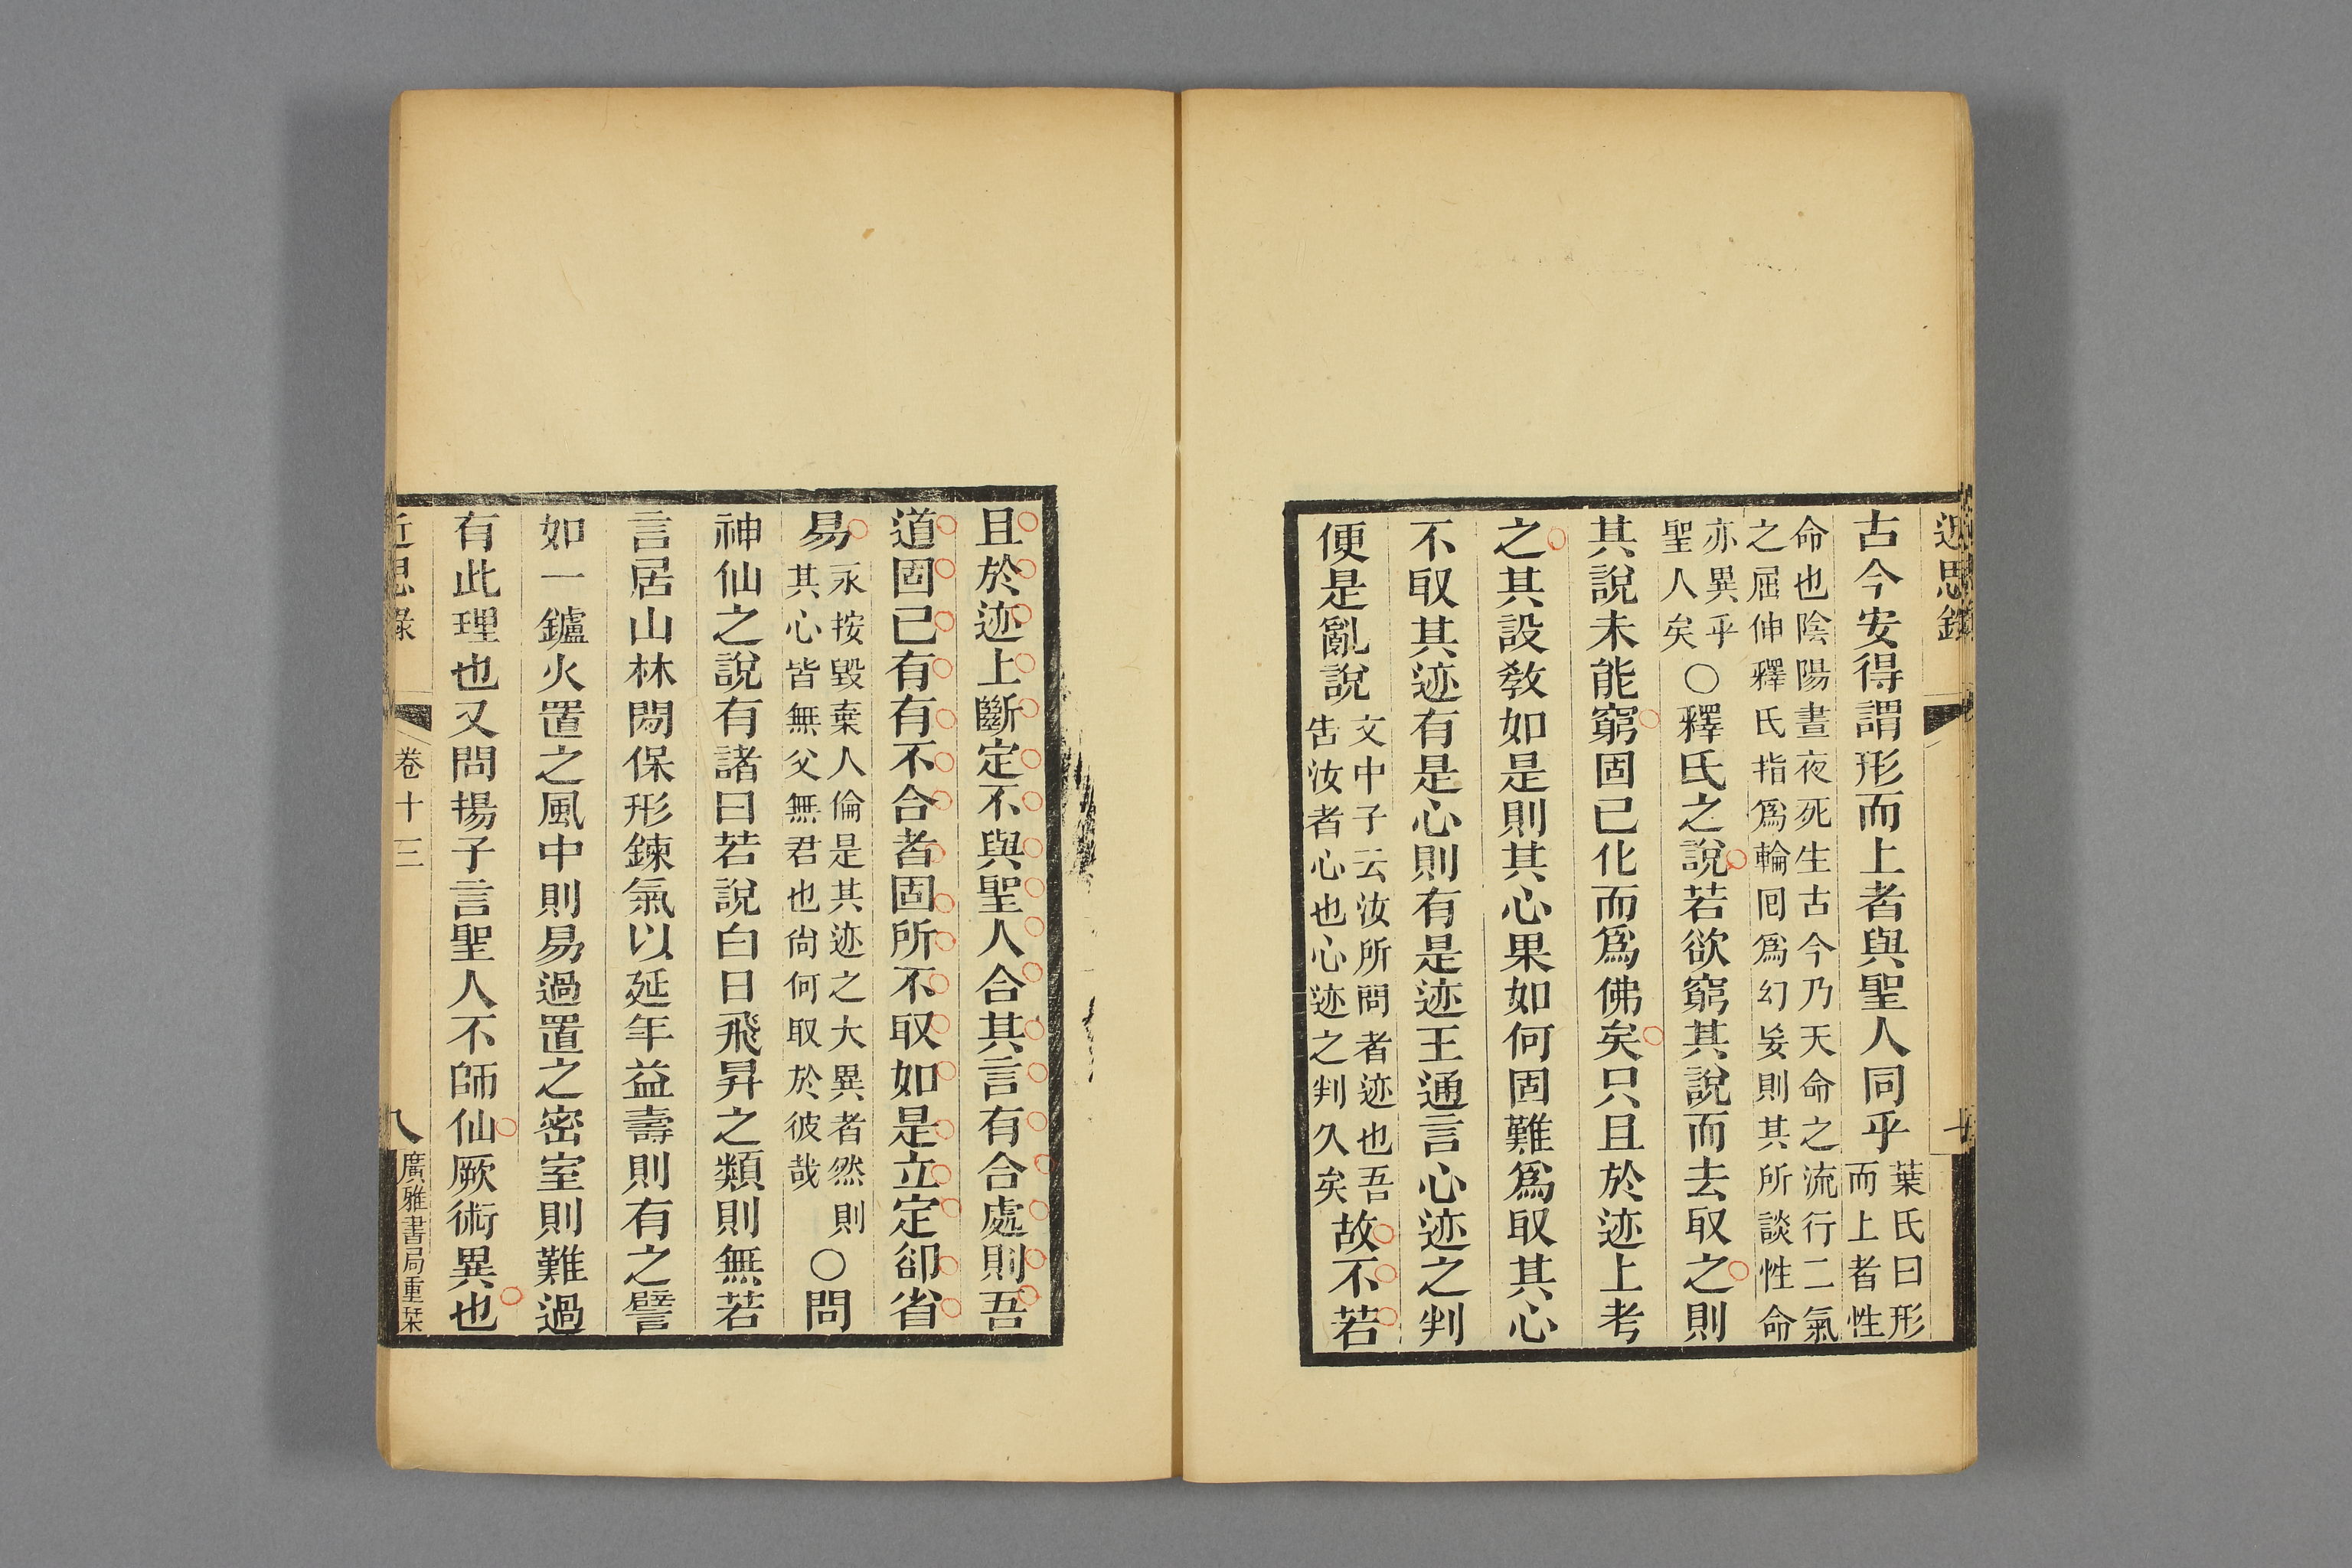 近思錄
古今安得謂形而上者與聖人同乎葉氏曰形而上者性
命也陰陽晝夜死生古今乃天命之流行二氣之屈伸釋氏指爲輪囘爲幻妄則其所談性命
亦異乎聖人矣○釋氏之說若欲窮其說而去取之則
其說未能窮固已化而爲佛矣只且於迹上考
之其設敎如是則其心果如何固難爲取其心
不取其迹有是心則有是迹王通言心迹之判
便是亂說文中子云汝所問者迹也吾告汝者心也心迹之判久矣故不若
且於迹上斷定不與聖人合其言有合處則吾
道固已有有不合者固所不取如是立定卻省
易永按毀棄人倫是其迹之大異者然則其心皆無父無君也尙何取於彼哉○問
神仙之說有諸曰若說白日飛昇之類則無若
言居山林閒保形鍊氣以延年益壽則有之譬
如一鑪火置之風中則易過置之密室則難過
有此理也又問揚子言聖人不師仙厥術異也
近思錄
卷十三
八
廣雅書局重栞